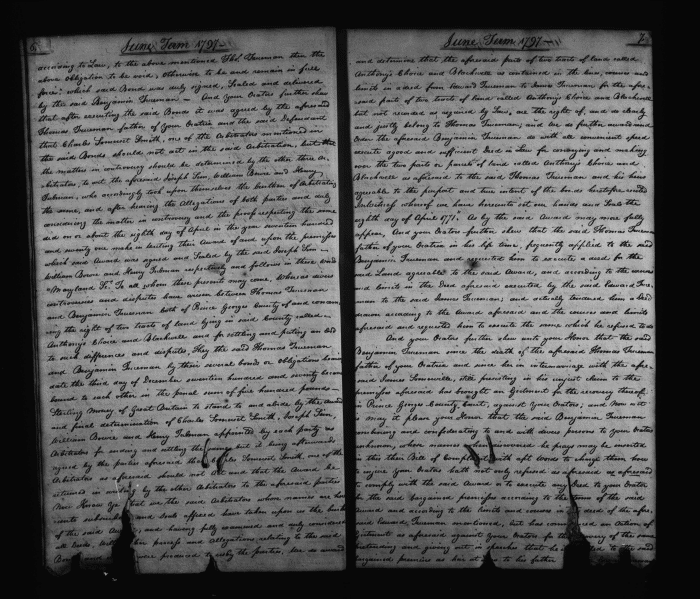 6
June Term 1797
according to Law, to the above mentioned Thos. Trueman then the
above obligation to be void, otherwise to be and remain in full
force: which said Bond was duly signed, Sealed and delivered
by the said Benjamin Trueman — And your Oratrix further shew
that after executing the said Bonds it was agreed by the aforesaid
Thomas Trueman father of your Oratrix and the said Defendant
that Charles Somerset Smith, one of the Arbitrators mentioned in
the said Bonds should not act in the said Arbitration, but that
the matters in controversy should be determined by the other three Ar-
bitrators, to wit, the aforesaid Joseph Sim, William Bowie and Henry
Tubman, who accordingly took upon themselves the burthen of Arbitrators
the same, and after hearing the Allegations of both parties and duly
considering the matter in controversy and the proof respecting the same
did on or about the eighth day of April in the year seventeen hundred
and seventy one make in writing their Award of and upon the premises
which said award was signed and Sealed by the said Joseph Sim
William Bowie and Henry Tubman respectively and follows in these words
"Maryland Ss. To all whom these presents may come, Whereas divers
controversies and disputes have arisen between Thomas Trueman
and Benjamin Trueman both of Prince Georges County of and concern-
ing the right of two tracts of land lying in said County called
Anthony's Choice and Blackwell and for settling and putting an end
to said differences and disputes They the said Thomas Trueman
and Benjamin Trueman by their several bonds or obligations bearing
date the third day of December seventeen hundred and seventy became
bound to each other in the penal sum of five hundred pounds
Sterling Money of Great Britain to stand to and abide by the award
and final determination of Charles Somerset Smith, Joseph Sim,
William Bowie and Henry Tubman appointed by each party as
Arbitrators for ending and settling the same but it being afterwards
agreed by the parties aforesaid that Charles Somerset Smith, one of the
Arbitrators as aforesaid should not act and that the Award be
returned in writing by the other Arbitrators to the aforesaid parties
Now Know Ye that we the said Arbitrators whose names are here
unto subscribed and seals affixed have taken upon us the burthen
of the said award, and having fully examined and duly considered
all Deeds, proofs and Allegations relating to the said
were produced to us by the parties, do award
7
June Term 1797
and determine that the aforesaid parts of two tracts of land called
Anthony's Choice and Blackwell as contained in the lines, courses and
limits in a deed from Edward Trueman to James Trueman for the afore-
said parts of two tracts of land called Anthony's Choice and Blackwell
but not recorded as required by Law, are the right of, and do clearly
and justly belong to Thomas Trueman; and we do further award and
Order the aforesaid Benjamin Trueman do with all convenient speed
execute a good and sufficient Deed in Law for conveying and making
over the two parts or parcels of land called Anthony's Choice and
Blackwell as aforesaid to the said Thomas Trueman and his heirs
agreeable to the purport and true intent of the bonds heretofore entered
In Witness whereof we have hereunto set our hands and Seals the
eighth day of April 1771. As by the said Award may more fully
appear, And your Oratrix further shew that the said Thomas Trueman
father of your Oratrix in his life time, frequently applied to the said
Benjamin Trueman and requested him to execute a deed for the
said Lands agreeable to the said Award, and according to the courses
and limits in the Deed aforesaid executed by the said Edward True-
man to the said James Trueman; and actually tendered him a Deed
drawn according to the Award aforesaid and the courses and limits
aforesaid and requested him to execute the same which he refused to do
And your Oratrix further shew unto your Honor that the said
Benjamin Trueman since the death of the aforesaid Thomas Trueman
father of your Oratrix and since her in intermarriage with the afore-
said James Somervell, still persisting in his unjust claim to the
premises aforesaid has brought an Ejectment for the recovery thereof
in Prince Georges County Court, against your Oratrix; and Now so it
may it please your Honor that the said Benjamin Trueman
combining and confederating to and with divers persons to your Oratrix
unknown, whose names when discovered he prays may be inserted
in this their Bill of Complaint with apt Words to charge them how
to injure your Oratrix hath not only refused as aforesaid
to comply with the said Award or to execute any Deed to your Oratrix
for the said bargained premises according to the terms of the said
award and according to the limits and courses in the deed of the afore-
said Edward Trueman mentioned, but has commenced an Action of
Ejectment as aforesaid against your Oratrix for the recovery of the same
pretending and giving out in speeches that he to the said
bargained premises as heir at Law to his father